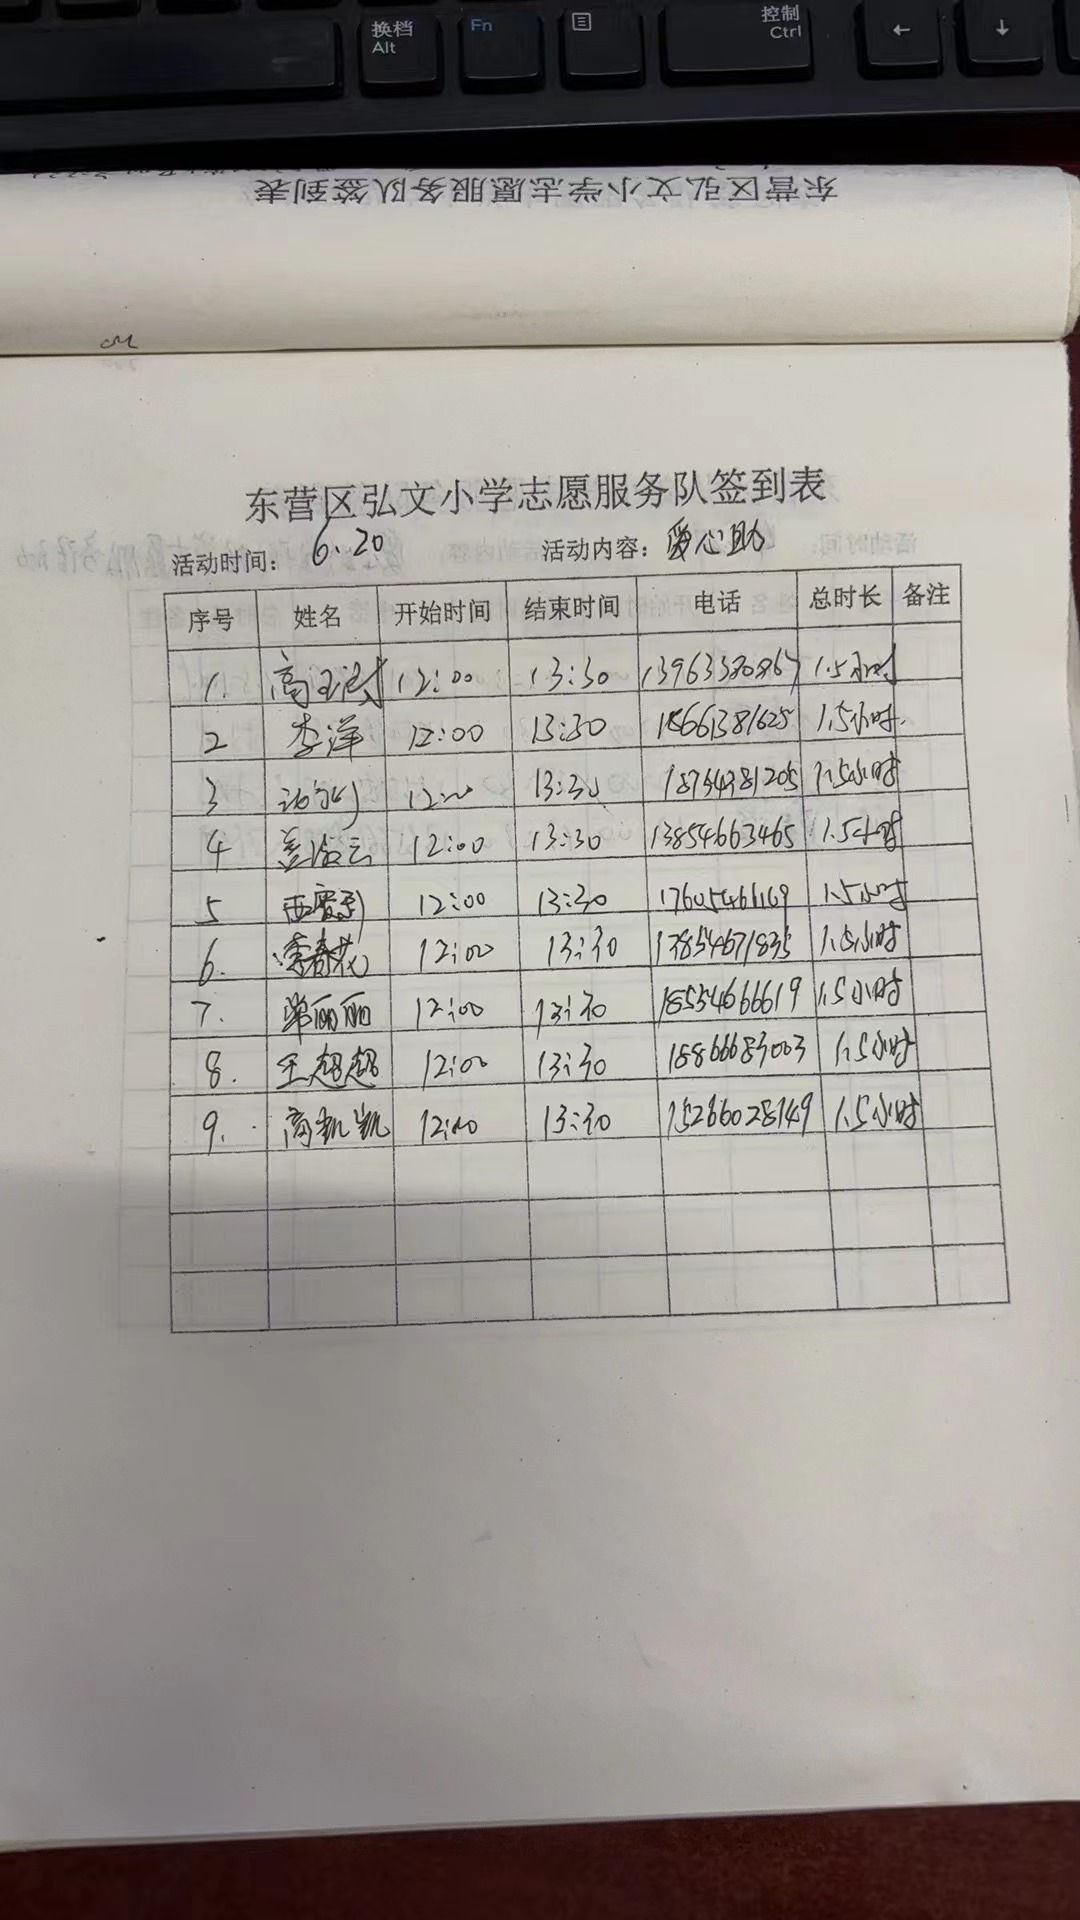 换档 Alt Fn 控制 Ctrl ← ↓
东营区弘文小学志愿服务队签到表
东营区弘文小学志愿服务队签到表
活动时间: 6.20 活动内容: 爱心助
序号 姓名 开始时间 结束时间 电话 总时长 备注
1. 12:00 13:30 1.5小时
2 李洋 12:00 13:30 18661381625 1.5小时.
3 12:00 13:30 1.5小时
4 12:00 13:30 13854663465 1.5小时
5 12:00 13:30 17605466169 1.5小时
6. 春花 12:00 13:30 13854671835 1.5小时
7. 单丽丽 12:00 13:30 18554666619 1.5小时
8. 王超超 12:00 13:30 18866683003 1.5小时
9. 高凯凯 12:00 13:30 15266028149 1.5小时